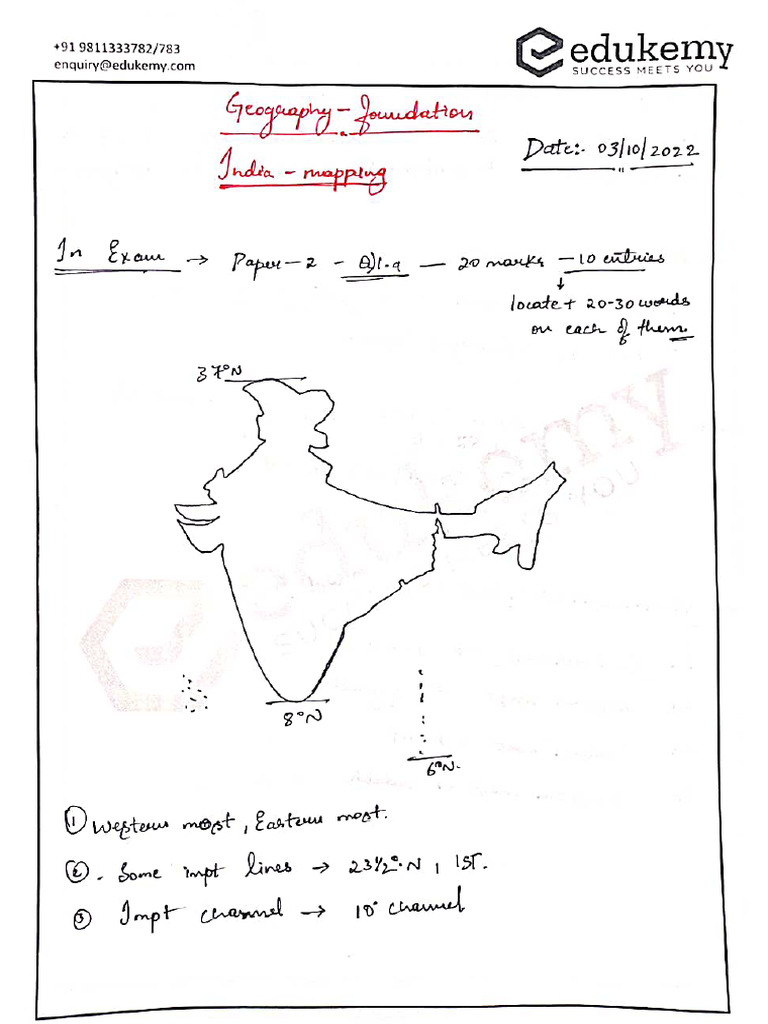 +91 9811333782/783
enquiry@edukemy.com
edukemy
SUCCESS MEETS YOU
Geography - foundation
India - mapping
Date:- 03/10/2022
In Exam → Paper-2 - Q)1.a — 20 marks — 10 entries
↓
locate + 20-30 words
on each of them.
37°N
8°N
6°N.
① Western most, Eastern most.
②. Some impt lines → 23 1/2°.N, IST.
③ Impt channel → 10° channel